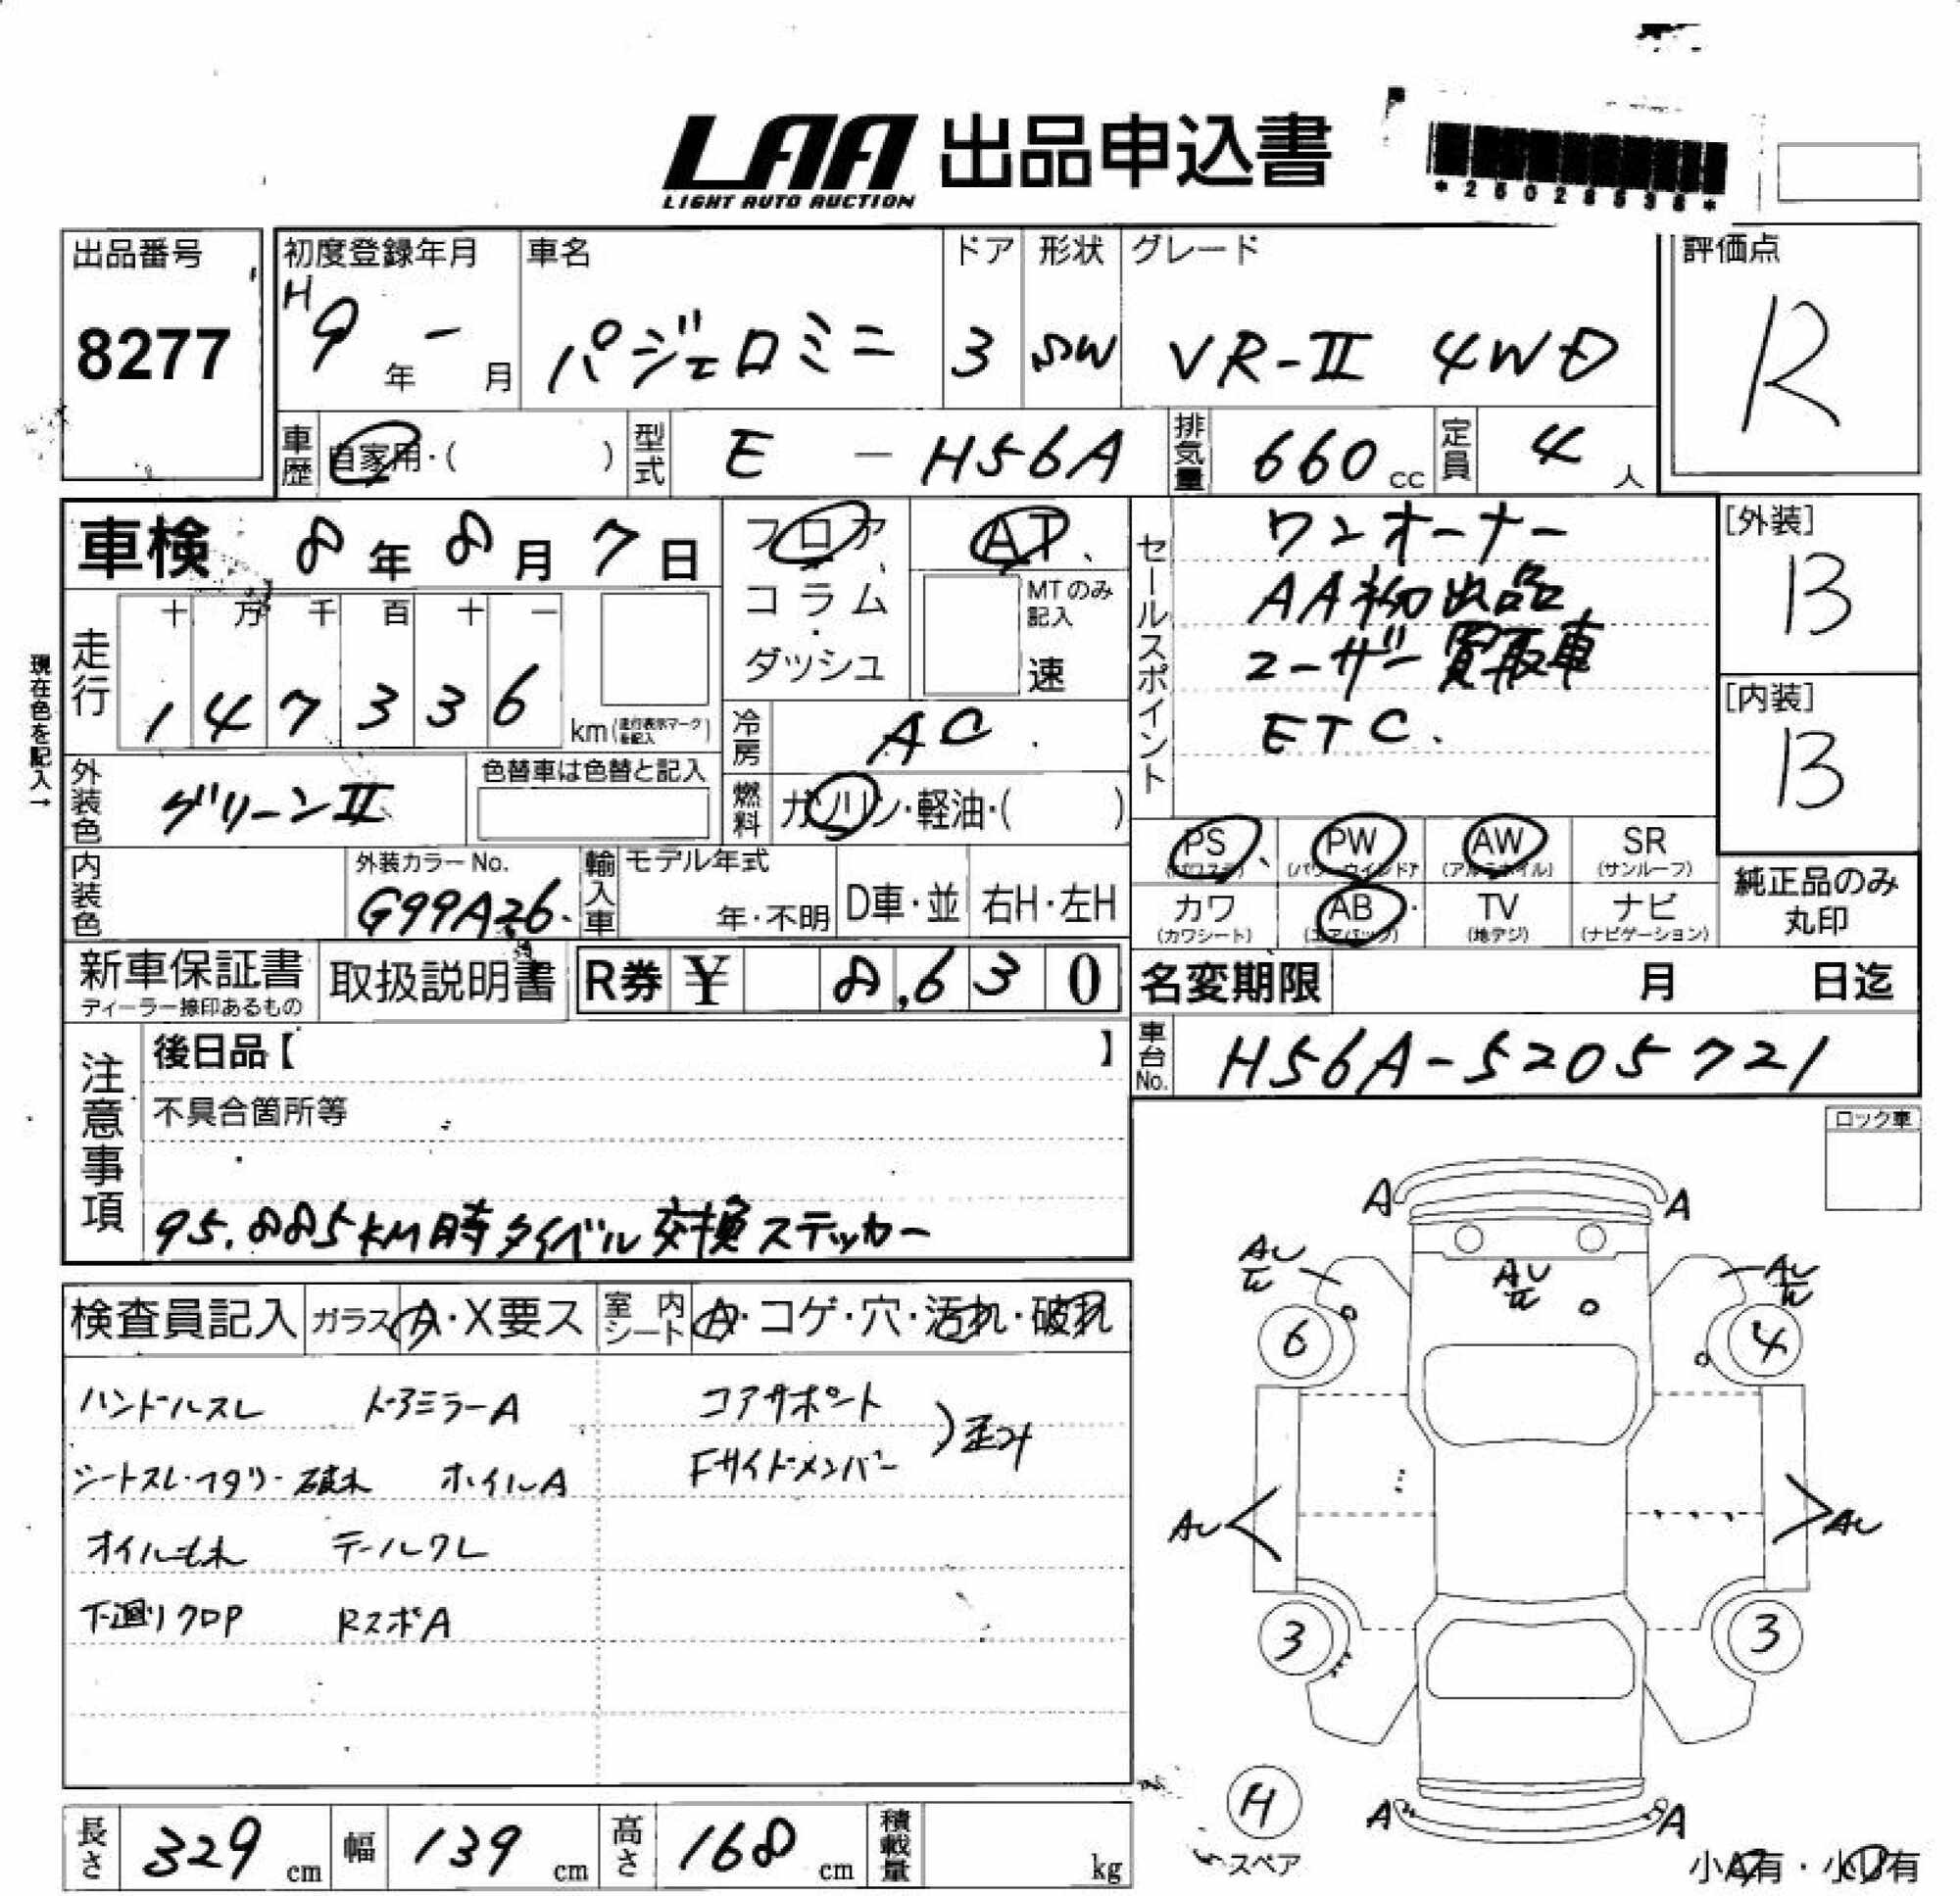 LAA 出品申込書
LIGHT AUTO AUCTION
出品番号
8277
初度登録年月
H9年 - 月
車名
パジェロミニ
ドア
3
形状
SW
グレード
VR-Ⅱ 4WD
評価点
R
車歴 自家用・( )
型式 E - H56A
排気量 660 cc
定員 4 人
車検 8年8月7日
フロア
コラム
ダッシュ
AT
MTのみ記入
速
セールスポイント
ワンオーナー
AA初出品
ユーザー買取車
ETC.
[外装]
B
[内装]
B
現在色を記入→
走行
十 万 千 百 十 一
1 4 7 3 3 6
km (走行表示マークを記入)
冷房 AC
外装色 グリーンⅡ
色替車は色替と記入
燃料 ガソリン・軽油・( )
PS (パワステ)
PW (パワーウインドア)
AW (アルミホイル)
SR (サンルーフ)
カワ (カワシート)
AB (エアバック)
TV (地デジ)
ナビ (ナビゲーション)
純正品のみ丸印
内装色
外装カラーNo.
G99A26.
輸入車
モデル年式
年・不明
D車・並
右H・左H
新車保証書
ディーラー捺印あるもの
取扱説明書
R券 ¥ 8,630
名変期限 月 日迄
車台No. H56A-5205721
注意事項
後日品【 】
不具合箇所等
95.885KM時タイベル交換ステッカー
ロック車
検査員記入
ガラス A・X要ス
室内シート A・コゲ・穴・汚れ・破れ
ハンドルスレ ドアミラーA コアサポート
シートスレ・ヘタリ・破れ ホイルA Fサイドメンバー
オイルもれ テールワレ
下廻り クロP RスポA
A A
AU AU AU
6 4
AU AU
3 3
H
スペア
A A
小A有・小U有
長さ 329 cm
幅 139 cm
高さ 168 cm
積載量 kg